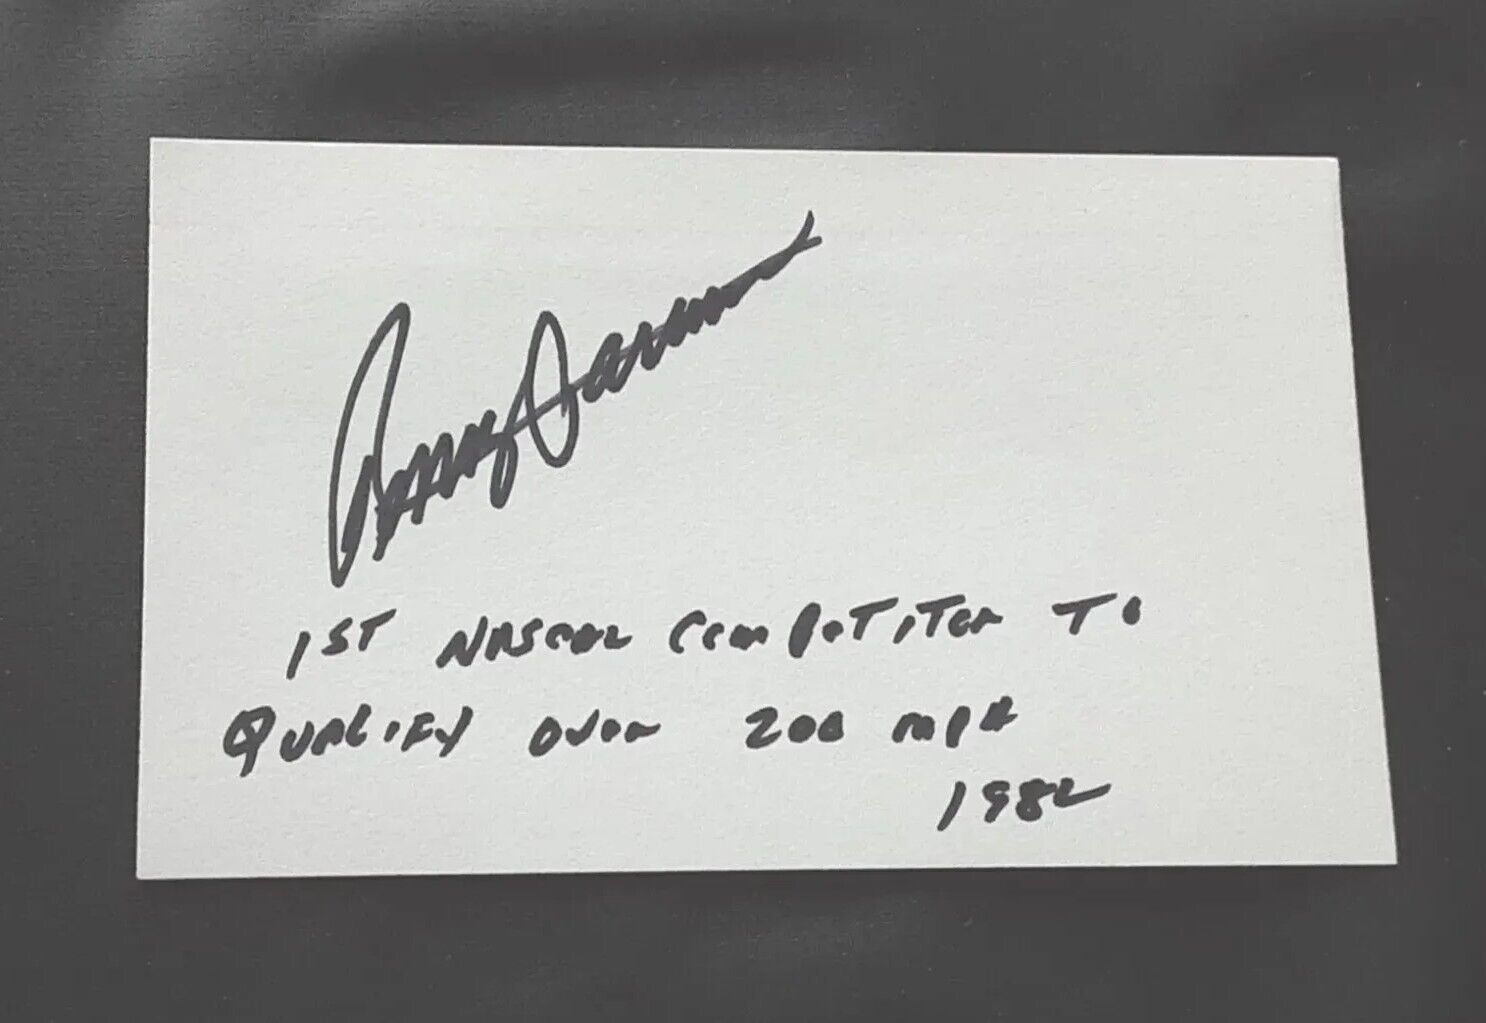 Benny Parsons
1ST NASCAR COMPETITOR TO
QUALIFY OVER 200 MPH
1982